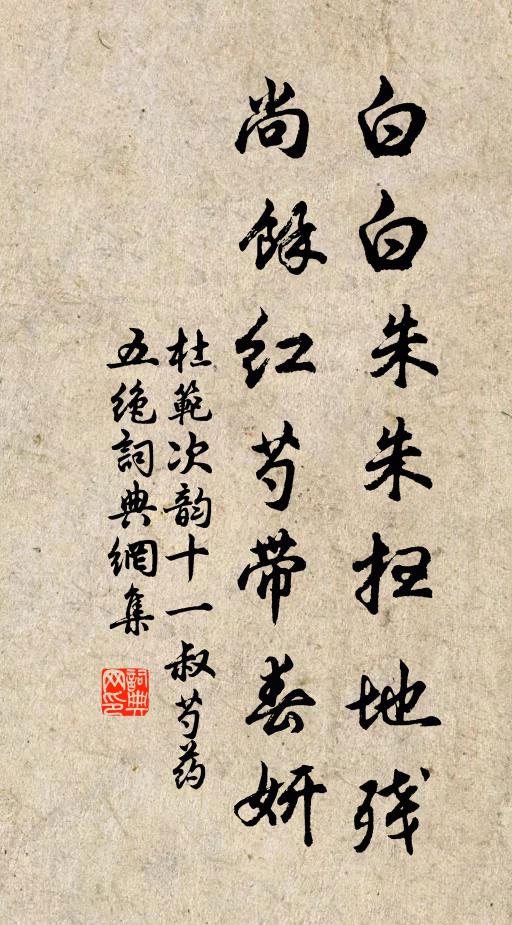 白白朱朱扫地残
尚馀红芍带春妍
杜範次韵十一叔芍药
五绝詞典網集
詞典网印